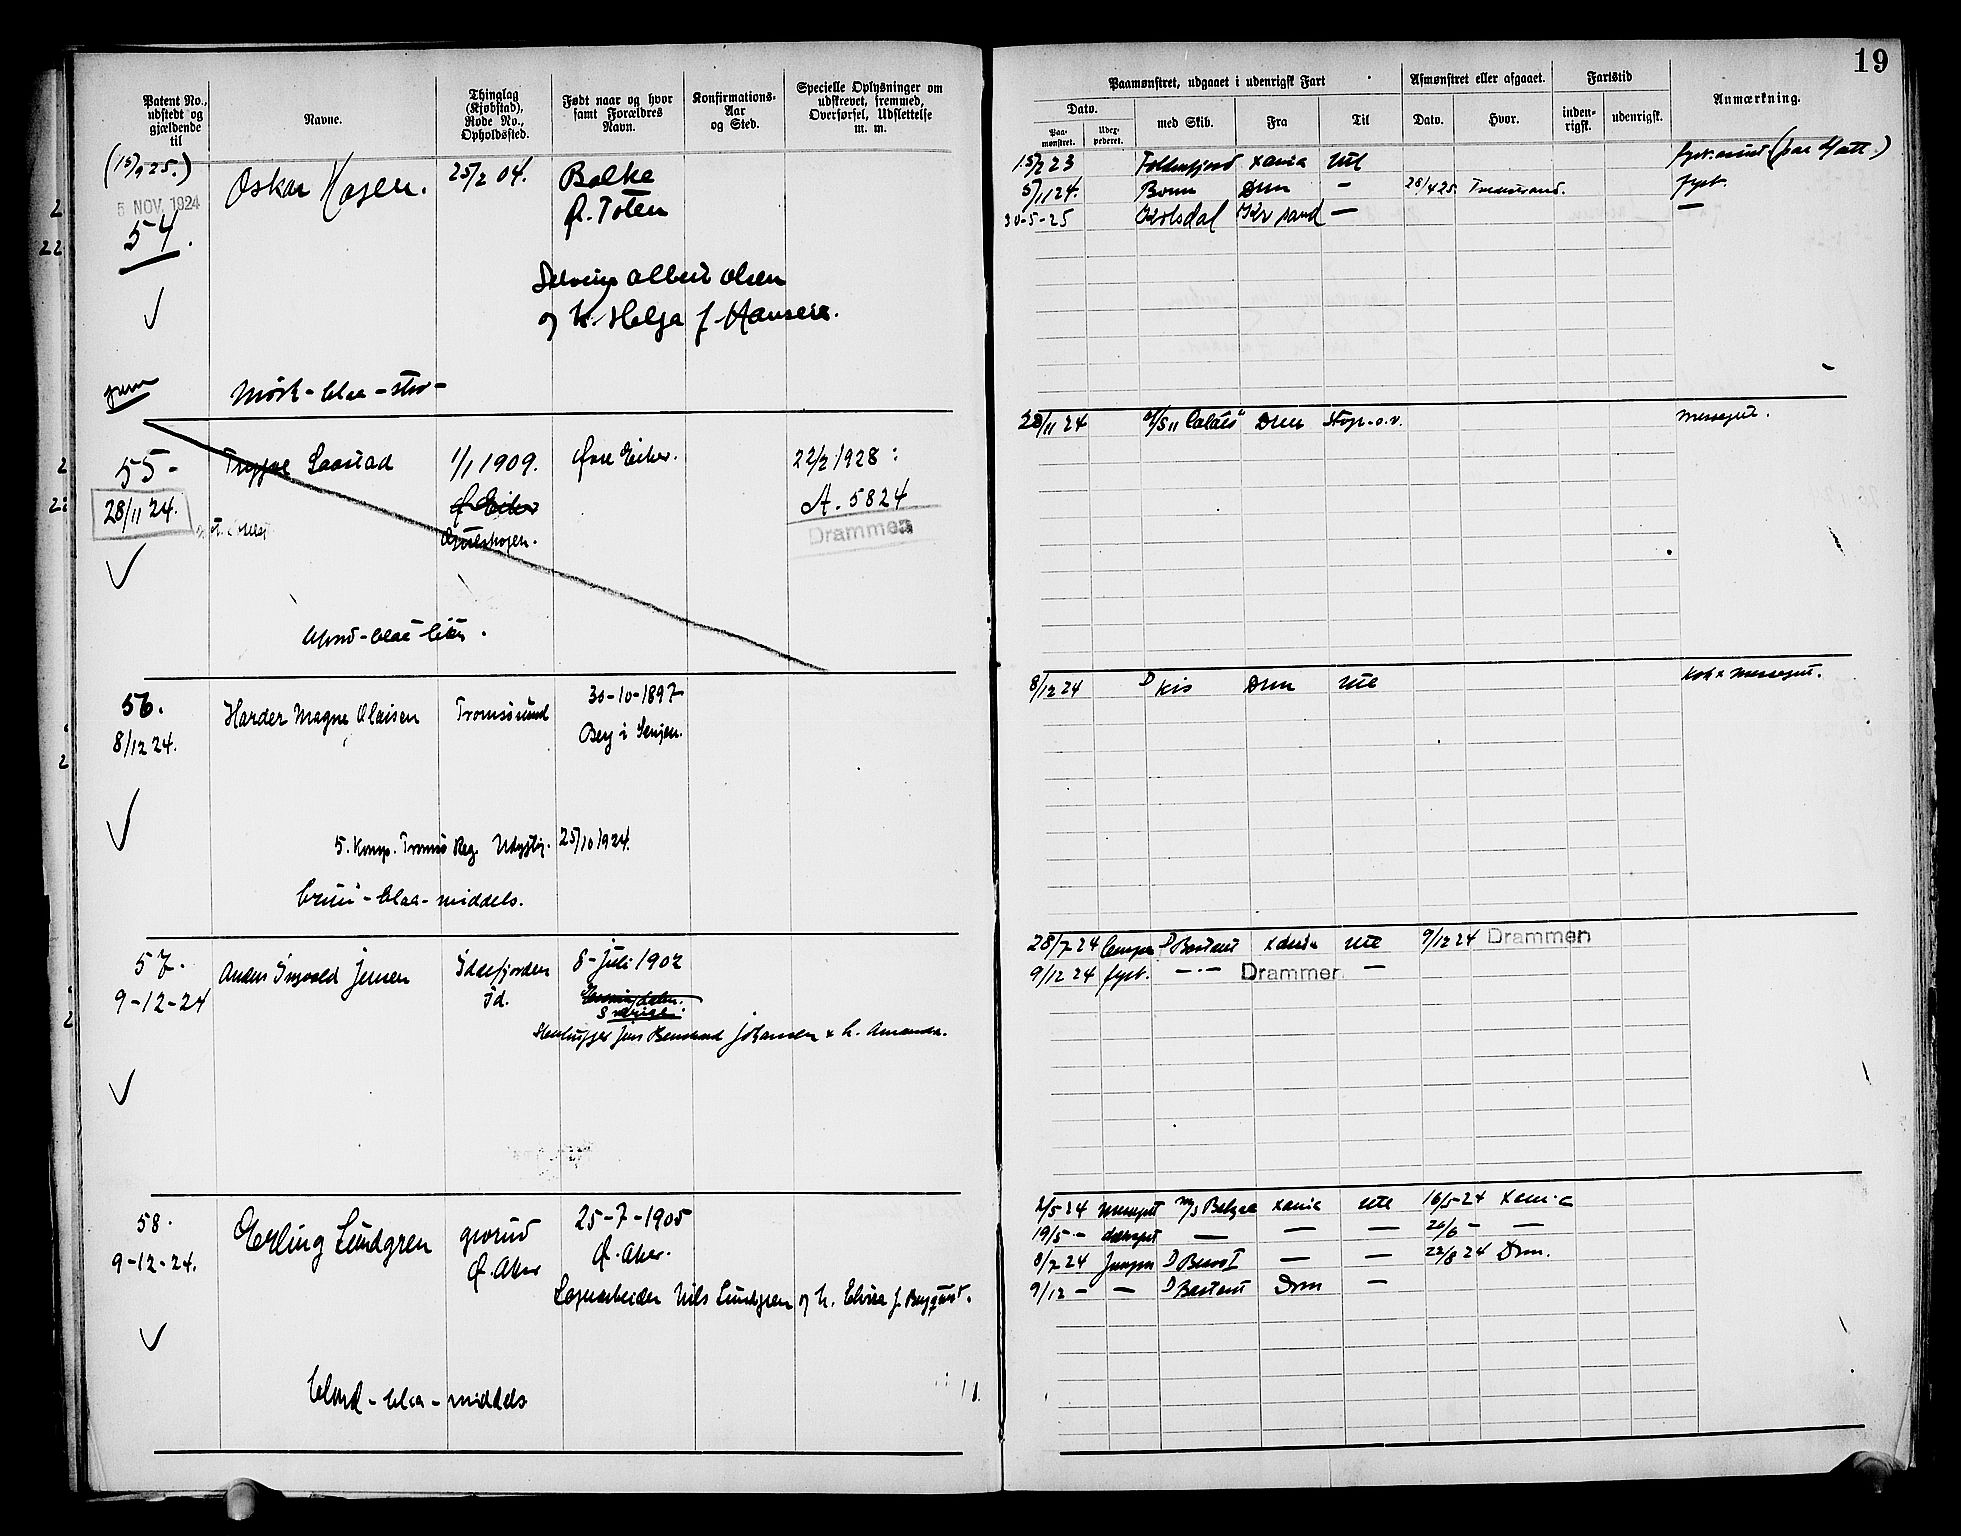 19
Patent No., udstedt og gjældende til
Navne.
Thinglag (Kjøbstad), Rode No., Opholdssted.
Født naar og hvor samt Forældres Navn.
Konfirmations-Aar og Sted.
Specielle Oplysninger om udskrevet, fremmed, Overførsel, Udslettelse m. m.
Paamønstret, udgaaet i udenrigsk Fart
Afmønstret eller afgaaet.
Fartstid
Anmærkning.
Dato.
Paamønstret.
med Skib.
Fra
Til
Dato.
Hvor.
indenrigsk.
udenrigsk.
(15/9 25.)
5 NOV. 1924
54.
Oskar Hagen.
25/2 04.
Balke
Ø. Toten
Albert Olsen
og h. Helga f. Hansen.
Mørk - blaa - stor -
15/2 23 Xania Ute
5/1 24. Bonn Drm — 28/4 25
fyrb.
30-5-25 Kolsdal Kr sand —
—
55 -
28/11 24.
Trygve
1/1 1909.
Ø Eiker
Øvre Eiker.
22/2 1928 :
A. 5824
Drammen
blond - blaa - liten.
28/11 24 Drm
messegut.
56.
8/12 24.
Harder Magne Olaisen
Tromsøsund
30-10-1897
Berg i Senjen.
5. Komp. Tromsø Reg. 25/10 1924.
brun - blaa - middels.
8/12 24 D Kis Drm Ute
Kok & Messegut.
57.
9-12-24
Anders Ingvald Jensen
Iddefjorden
Id.
8-juli 1902
Sverige.
Stenhugger Jens Bernhard Johansen & h. Amanda.
28/7 24 D Bastant Xania Ute 9/12 24 Drammen
9/12 24 fyrb. — · — Drammen —
58.
9-12-24.
Erling Lundgren
Grorud
Ø. Aker
25-7-1905
Ø. Aker.
Nils Lundgren og h. Elvira f. Bergqvist.
blond - blaa - middels
2/5 24 Messegut M/S Belgia Xania Ute 16/5 24 Xania
19/5 - dæksgut — — — 20/6 - —
8/7 24 Jungm D — — 22/8 24 Drm.
9/12 - — D Bastant Drm —